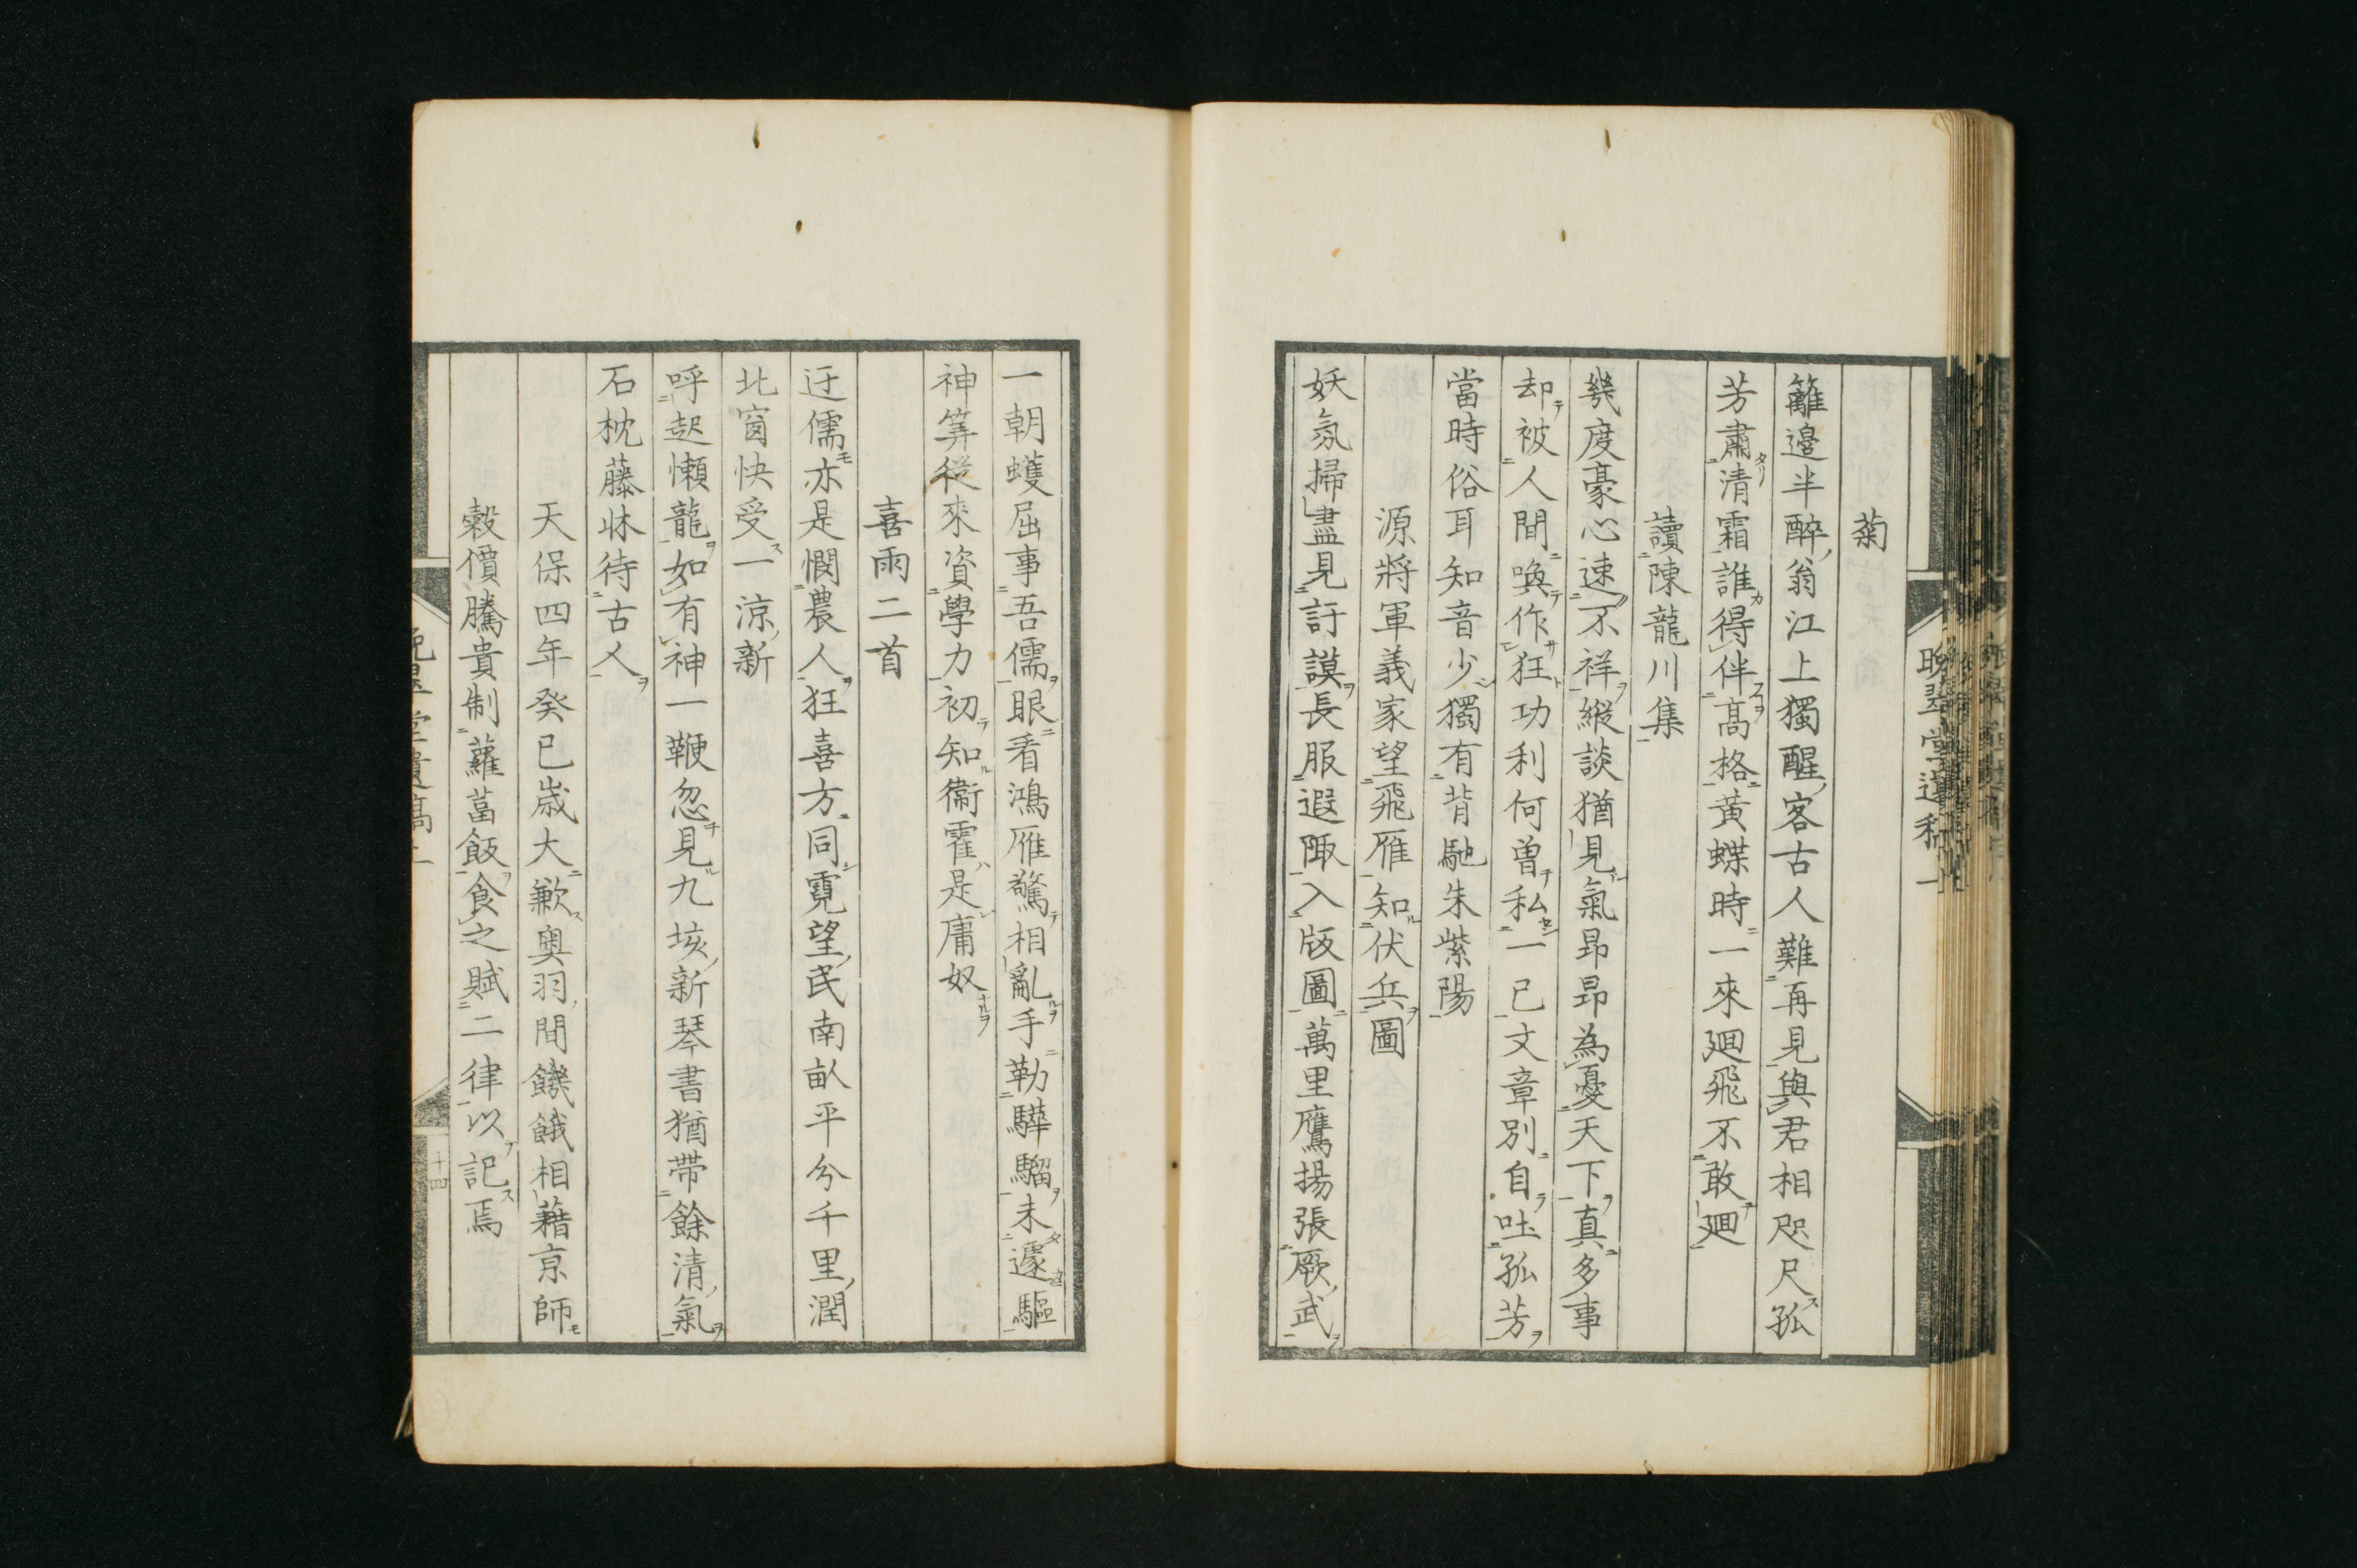 菊
籬邉半醉翁江上獨醒客古人難再見與君相咫尺孤
芳肅清霜誰得伴髙格黄蝶時一來廻飛不敢廻
讀陳龍川集
幾度豪心速不祥縱談猶見氣昻昻為憂天下真多事
却被人間喚作狂功利何曽私一已文章別自吐孤芳
當時俗耳知音少獨有背馳朱紫陽
源將軍義家望飛雁知伏兵圖
妖氛掃盡見訏謨長服遐陬入版圖萬里鷹揚張厥武
一朝蠖屈事吾儒眼看鴻雁驚相亂手勒驊騮未遽驅
神筭從來資學力初知衞霍是庸奴
喜雨二首
迂儒亦是憫農人狂喜方同霓望民南畝平分千里潤
北窗快受一涼新
呼起懶龍如有神一鞭忽見九垓新琴書猶帯餘清氣
石枕藤牀待古人
天保四年癸巳歳大歉奥羽間饑餓相藉京師
穀價騰貴制蘿葍飯食之賦二律以記焉
十四